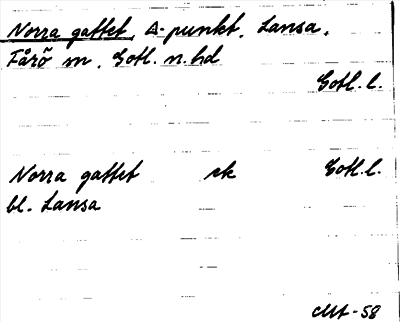 Norra gattet, △-punkt, Lansa,
Fårö sn, Gotl. n. hd
Gotl. l.
Norra gattet ek Gotl. l.
bl. Lansa
-58